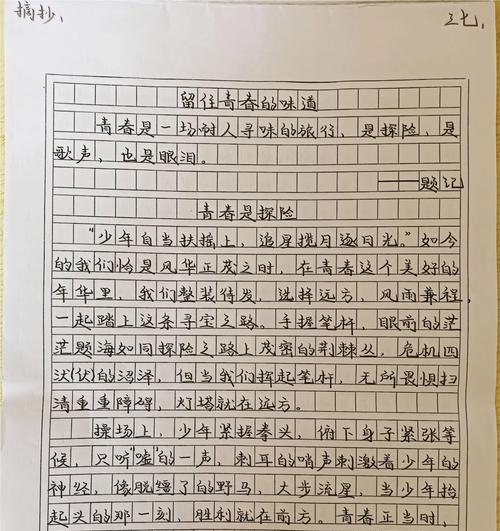 摘抄、
三七、
留住青春的味道
青春是一场耐人寻味的旅行，是探险，是
歌声，也是眼泪。
——题记
青春是探险
“少年自当扶摇上，追星揽月逐日光。”如今
的我们恰是风华正茂之时，在青春这个美好的
年华里，我们整装待发，选择远方，风雨兼程，
一起踏上这条寻宝之路。手握笔杆，眼前的茫
茫题海如同探险之路上茂密的荆棘丛，危机四
汰(伏)的沼泽，但当我们挥起笔杆，无所畏惧扫
清重重障碍，灯塔就在远方。
操场上，少年紧握拳头，俯下身子紧张等
候，只听“嘘”的一声，刺耳的哨声刺激着少年的
神经，像脱缰了的野马，大步流星，当少年抬
起头的那一刻，胜利就在前方。青春正当时，